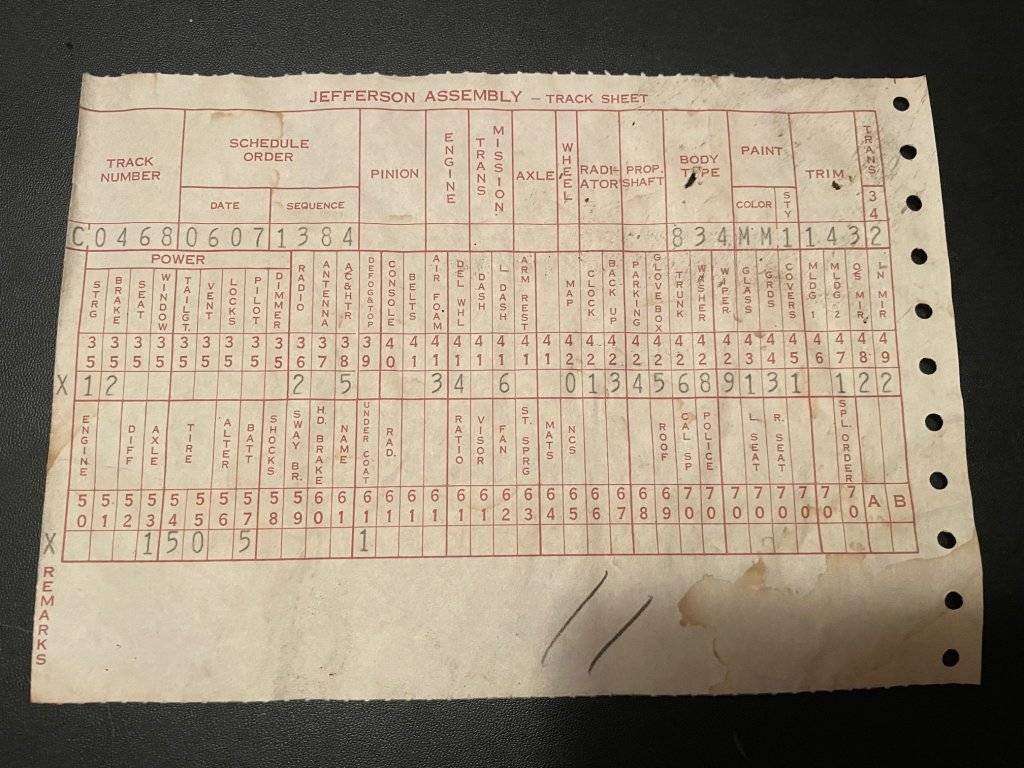 JEFFERSON ASSEMBLY – TRACK SHEET
TRACK NUMBER SCHEDULE ORDER PINION ENGINE TRANS MISSION AXLE WHEEL RADI-ATOR PROP. SHAFT BODY TYPE PAINT TRIM TRANS
DATE SEQUENCE COLOR STY 34
C 0468 0607 1384 834 MM 1 143 2
POWER
STRG BRAKE SEAT WINDOW TAILGT. VENT LOCKS PILOT DIMMER RADIO ANTENNA AC&HTR DEFOG&TOP CONSOLE BELTS AIR FOAM DEL WHL DASH L. DASH ARM REST MAP CLOCK BACK UP PARKING GLOVE BOX TRUNK WASHER WIPER GLASS GRDS COVERS MLDG 1 MLDG 2 OS MIR LN MIR
35 35 35 35 35 35 35 35 35 36 37 38 39 40 41 41 41 41 41 41 41 42 42 42 42 42 42 42 42 43 44 45 46 47 48 49
X 1 2 2 5 3 4 6 0 1 3 4 5 6 8 9 1 3 1 1 2 2
ENGINE DIFF AXLE TIRE ALTER BATT SHOCKS SWAY BR. H.D. BRAKE NAME UNDER COAT RAD. RATIO VISOR FAN ST. SPRG MATS NCS ROOF CAL SP POLICE L. SEAT R. SEAT SPL. ORDER
50 51 52 53 54 55 56 57 58 59 60 61 61 61 61 61 61 62 63 64 65 66 67 68 69 70 70 70 70 70 70 70 A B
X 1 5 0 5 1
REMARKS